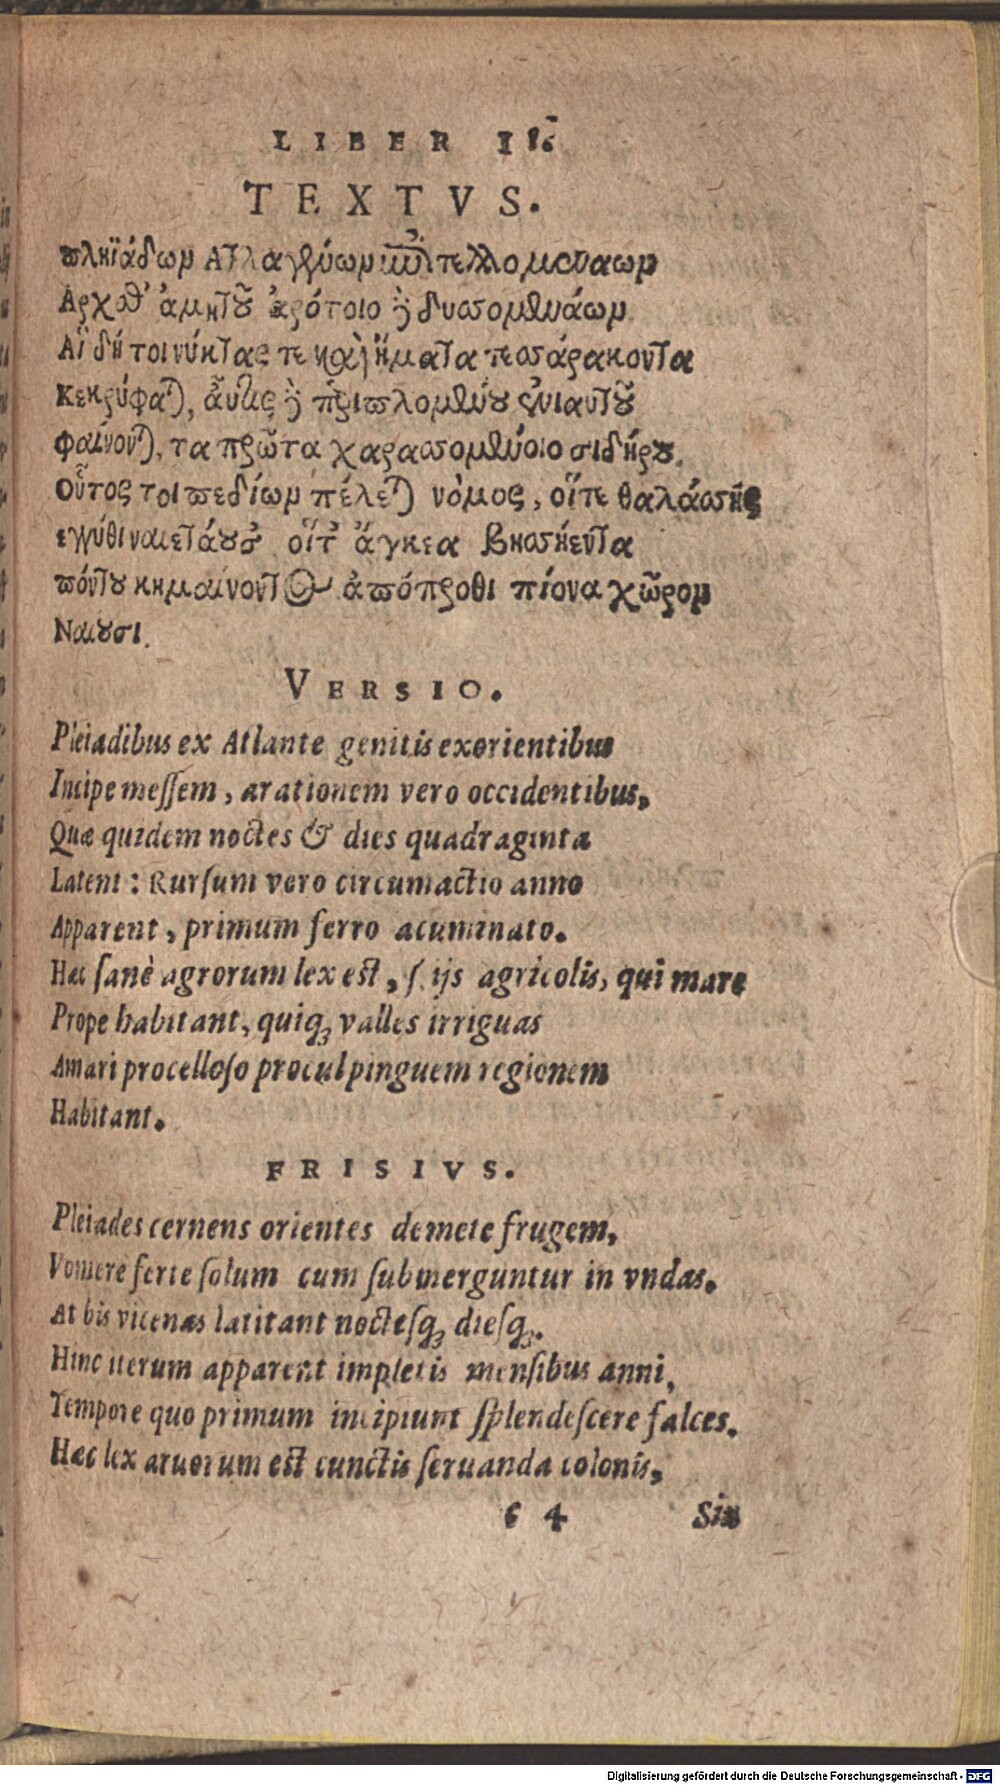 LIBER II.
TEXTVS.
πληϊάδωμ Ατλαγενέωμ ἐπιτελλομενάωμ
Αρχεθ' ἀμητοῦ ἀρότοιο ἢ δυσομενάωμ.
Αἳ δή τοι νύκτας τε καὶ ἤματα τεσσάρακοντα
Κεκρύφαται, αὖτις ἢ περιπλομένου ἐνιαυτοῦ
φαίνονται, τα πρῶτα χαρασσομένοιο σιδήρου.
Οὗτος τοι πεδίωμ πέλεται νόμος, οἵτε θαλάσσης
εγγύθι ναιετάουσ' οἵτ' ἄγκεα βησσήεντα
πόντου κημαίνοντος ἀπόπροθι πίονα χῶρομ
Ναίουσι.
VERSIO.
Pleiadibus ex Atlante genitis exorientibus
Incipe meſſem, arationem vero occidentibus,
Quæ quidem noctes & dies quadraginta
Latent: Rurſum vero circumactio anno
Apparent, primum ferro acuminato.
Hæc ſanè agrorum lex eſt, ſ. ijs agricolis, qui mare
Prope habitant, quiq; valles irriguas
Amari procelloſo procul pinguem regionem
Habitant.
FRISIVS.
Pleiades cernens orientes demete frugem,
Vomere ferte ſolum cum ſubmerguntur in vndas.
At bis vicenas latitant nocteſq; dieſq;.
Hinc iterum apparent impletis menſibus anni,
Tempore quo primum incipiunt ſplendeſcere falces.
Hæc lex aruorum eſt cunctis ſeruanda colonis,
6 4 Siu
Digitalisierung gefördert durch die Deutsche Forschungsgemeinschaft - DFG